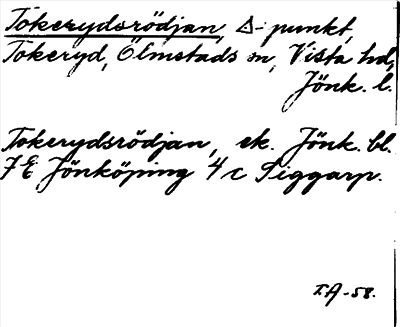 Tokerydsrödjan, Δ-punkt,
Tokeryd, Ölmstads sn, Vista hd,
Jönk. l.
Tokerydsrödjan, ek. Jönk. bl.
7 E Jönköping 4 c Siggarp.
IA-58.